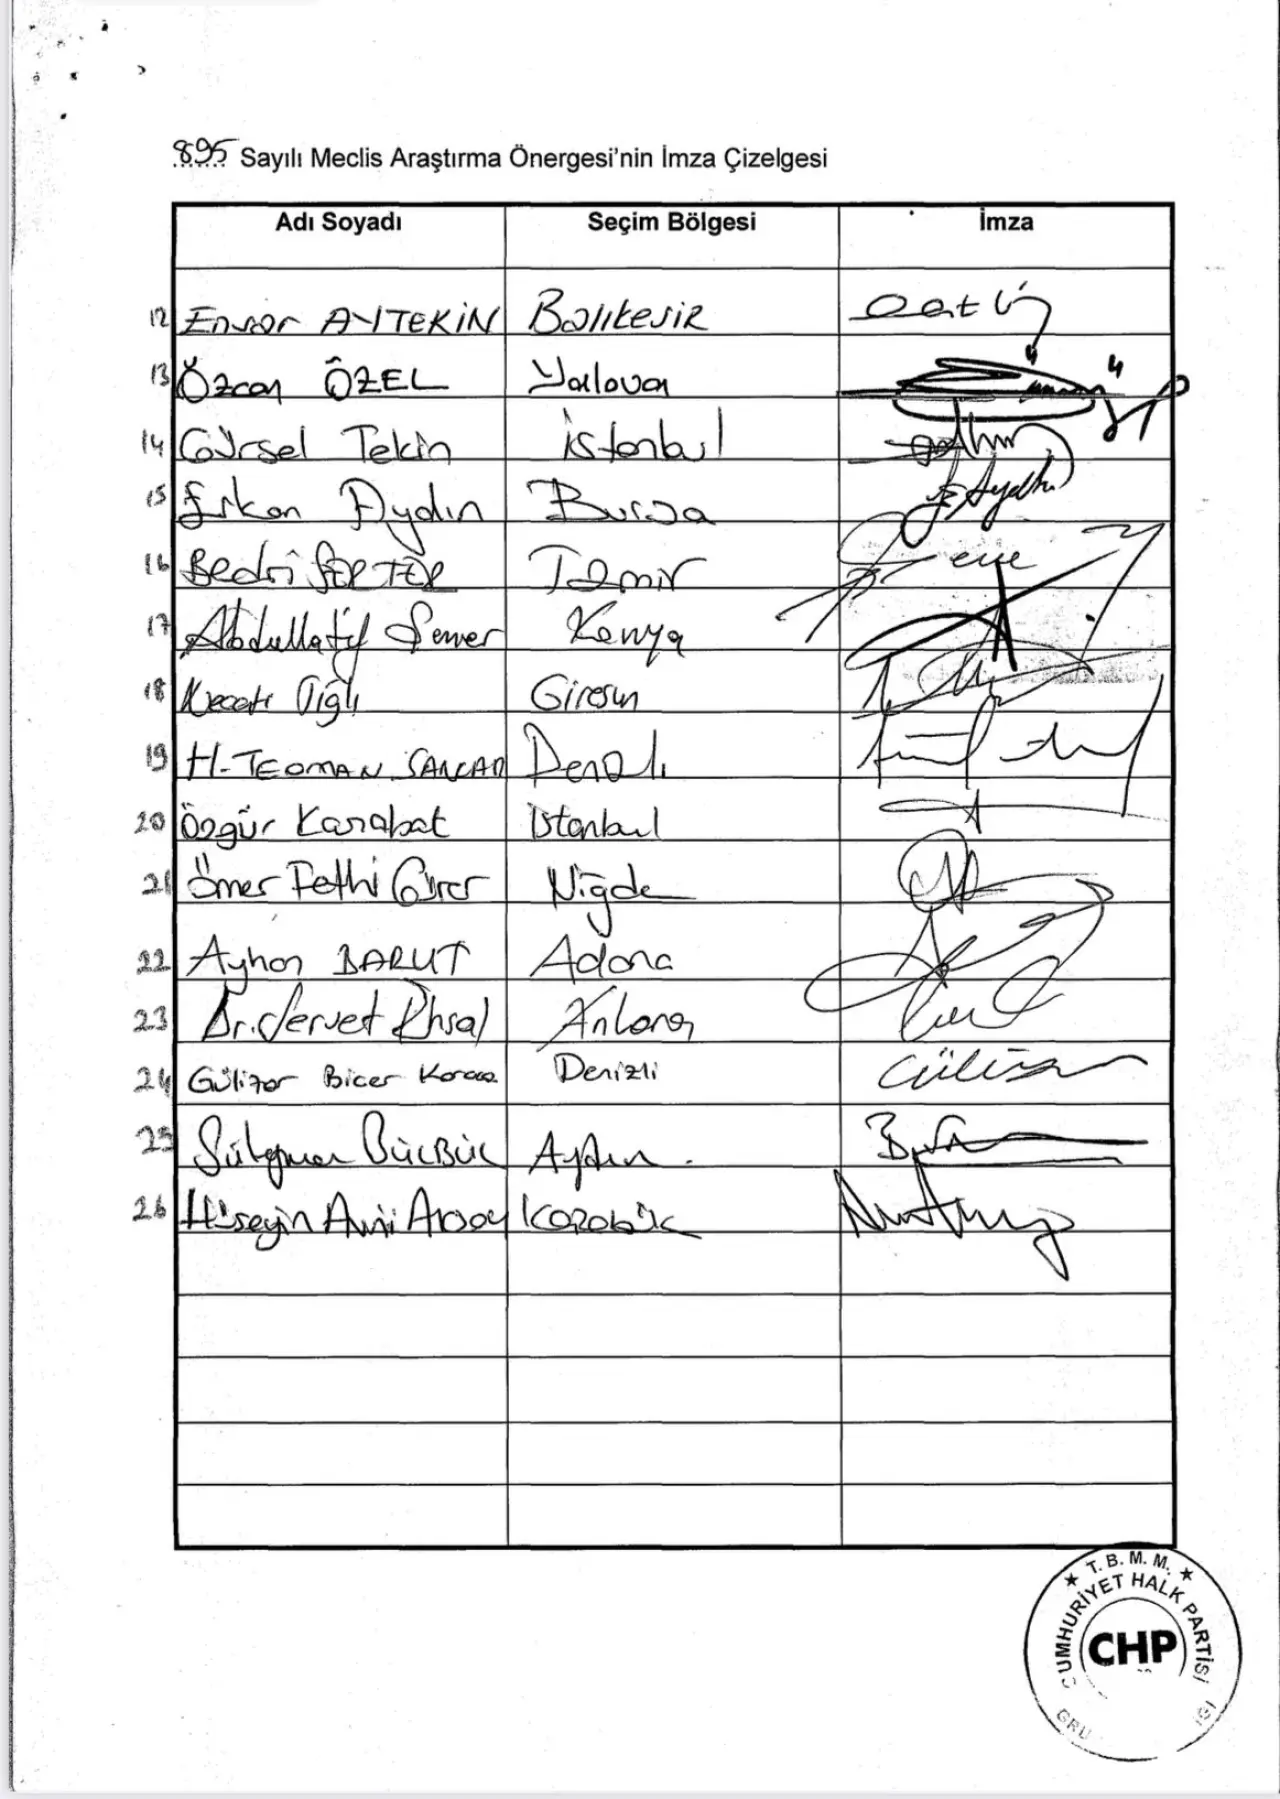 895 Sayılı Meclis Araştırma Önergesi'nin İmza Çizelgesi
Adı Soyadı Seçim Bölgesi İmza
12 Ensar AYTEKİN Balıkesir
13 Özcan ÖZEL Yalova
14 Gürsel Tekin İstanbul
15 Erkan Aydın Bursa
16 Bedri SERTER İzmir
17 Abdullatif Şener Konya
18 Necati Tığlı Giresun
19 H. TEOMAN SANCAR Denizli
20 Özgür Karabat İstanbul
21 Ömer Fethi Gürer Niğde
22 Ayhan BARUT Adana
23 Dr. Servet Ünsal Ankara
24 Gülizar Biçer Karaca Denizli Gülizar
25 Süleyman Bülbül Aydın
26 Hüseyin Avni Aksoy Karabük
T.B.M.M.
CUMHURİYET HALK PARTİSİ
CHP